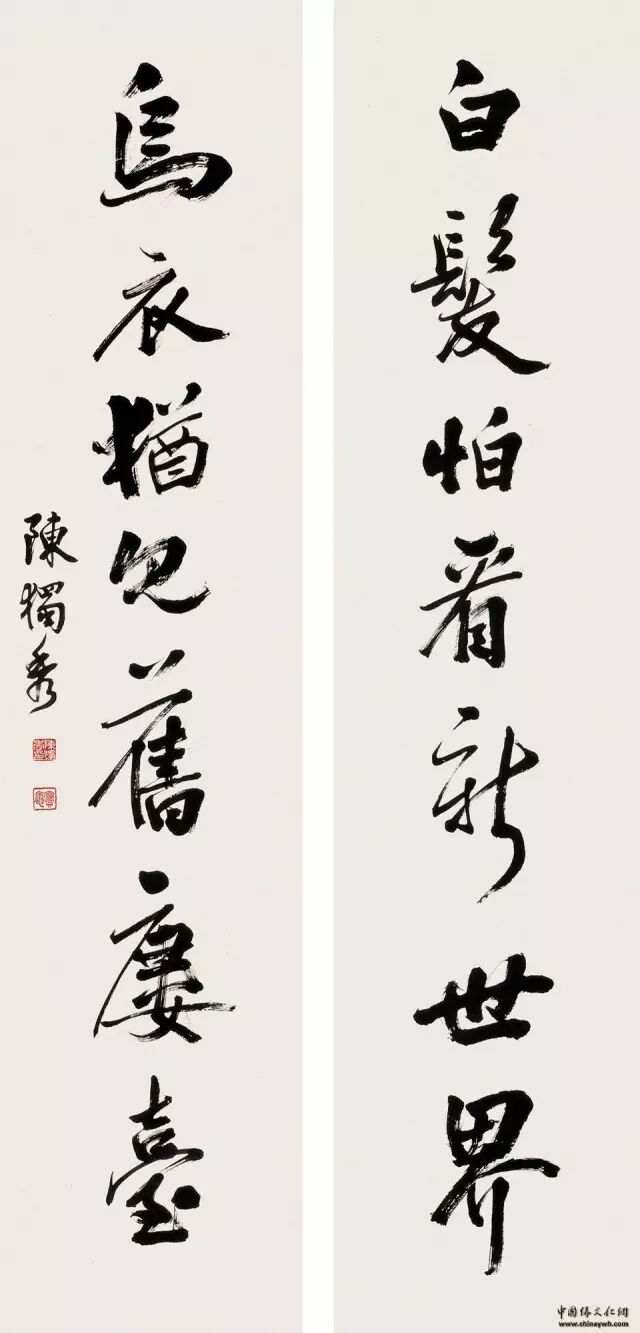 白髮怕看新世界
烏衣猶見舊廔臺
陳獨秀
中国楹文化網
www.chinaywh.com